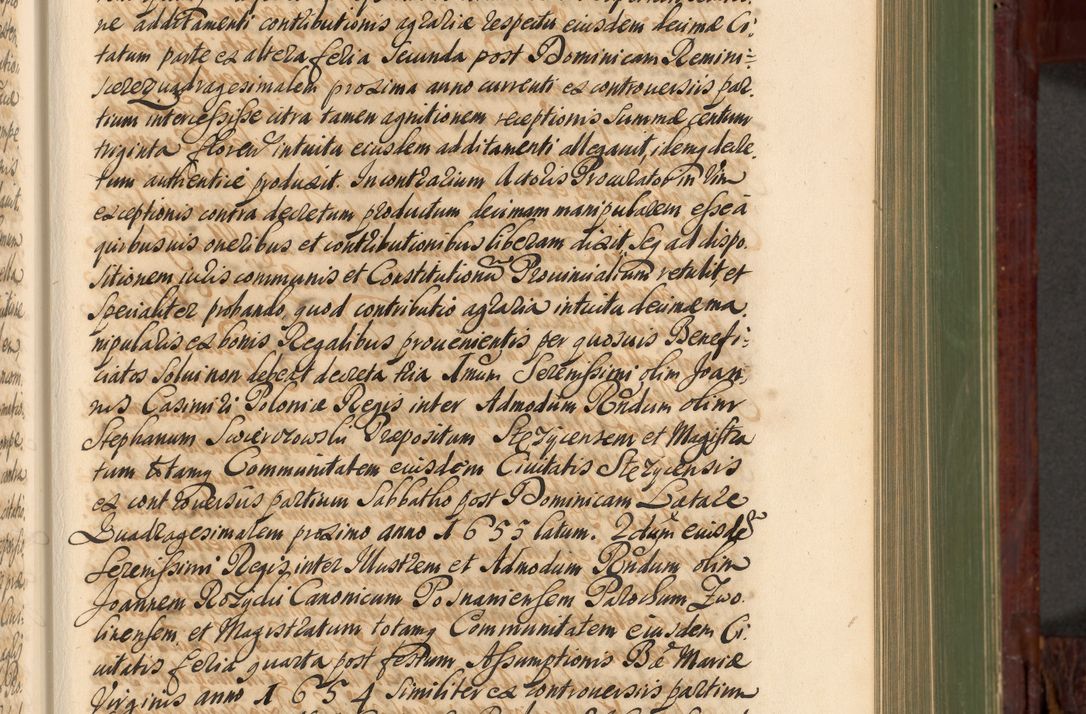 ne additamenti contributionis agrariæ respectu eiusdem decimæ Ci-
tatum parte ex altera feria secunda post Dominicam Remini-
scere quadragesimalem proxima anno currenti ex controversiis par-
tium intercessisse citra tamen agnitionem receptionis summæ centum
triginta floren intuitu eiusdem additamenti allegavit, idemq decre-
tum authenticè produxit. In contrarium Actoris Procurator in vim
exceptionis contra decretum productum decimam manipularem esse à
quibusvis oneribus et contributionibus liberam dixit seq ad dispo-
sitionem iuris communis et Constitutionū Provincialium retulit, et
specialiter probando, quod contributio agraria intuitu decimæ ma-
nipularis ex bonis Regalibus provenientis per quosvis Benefi-
ciatos solui non debeat decreta tria 1mum Serenissimi olim Joan-
nis Casimiri Poloniæ Regis inter Admodum Rndum olim
Stephanum Swierczowski Præpositum Stezycensem et Magistra
tum totamq Communitatem eiusdem Civitatis Stezycensis
ex controversiis partium Sabbatho post Dominicam Lætare
Quadragesimalem proximo anno 1655 latum. 2dum eiusdē
Serenissimi Regis inter Illustrem et Admodum Rndum olim
Joannem Rozycki Canonicum Posnaniensem Parochum Zwo-
linensem, et Magistratum totamq Communitatem eiusdem Ci-
uitatis feria quarta post festum Assumptionis Bæ Mariæ
Virginis anno 1654 similiter ex controversiis partium